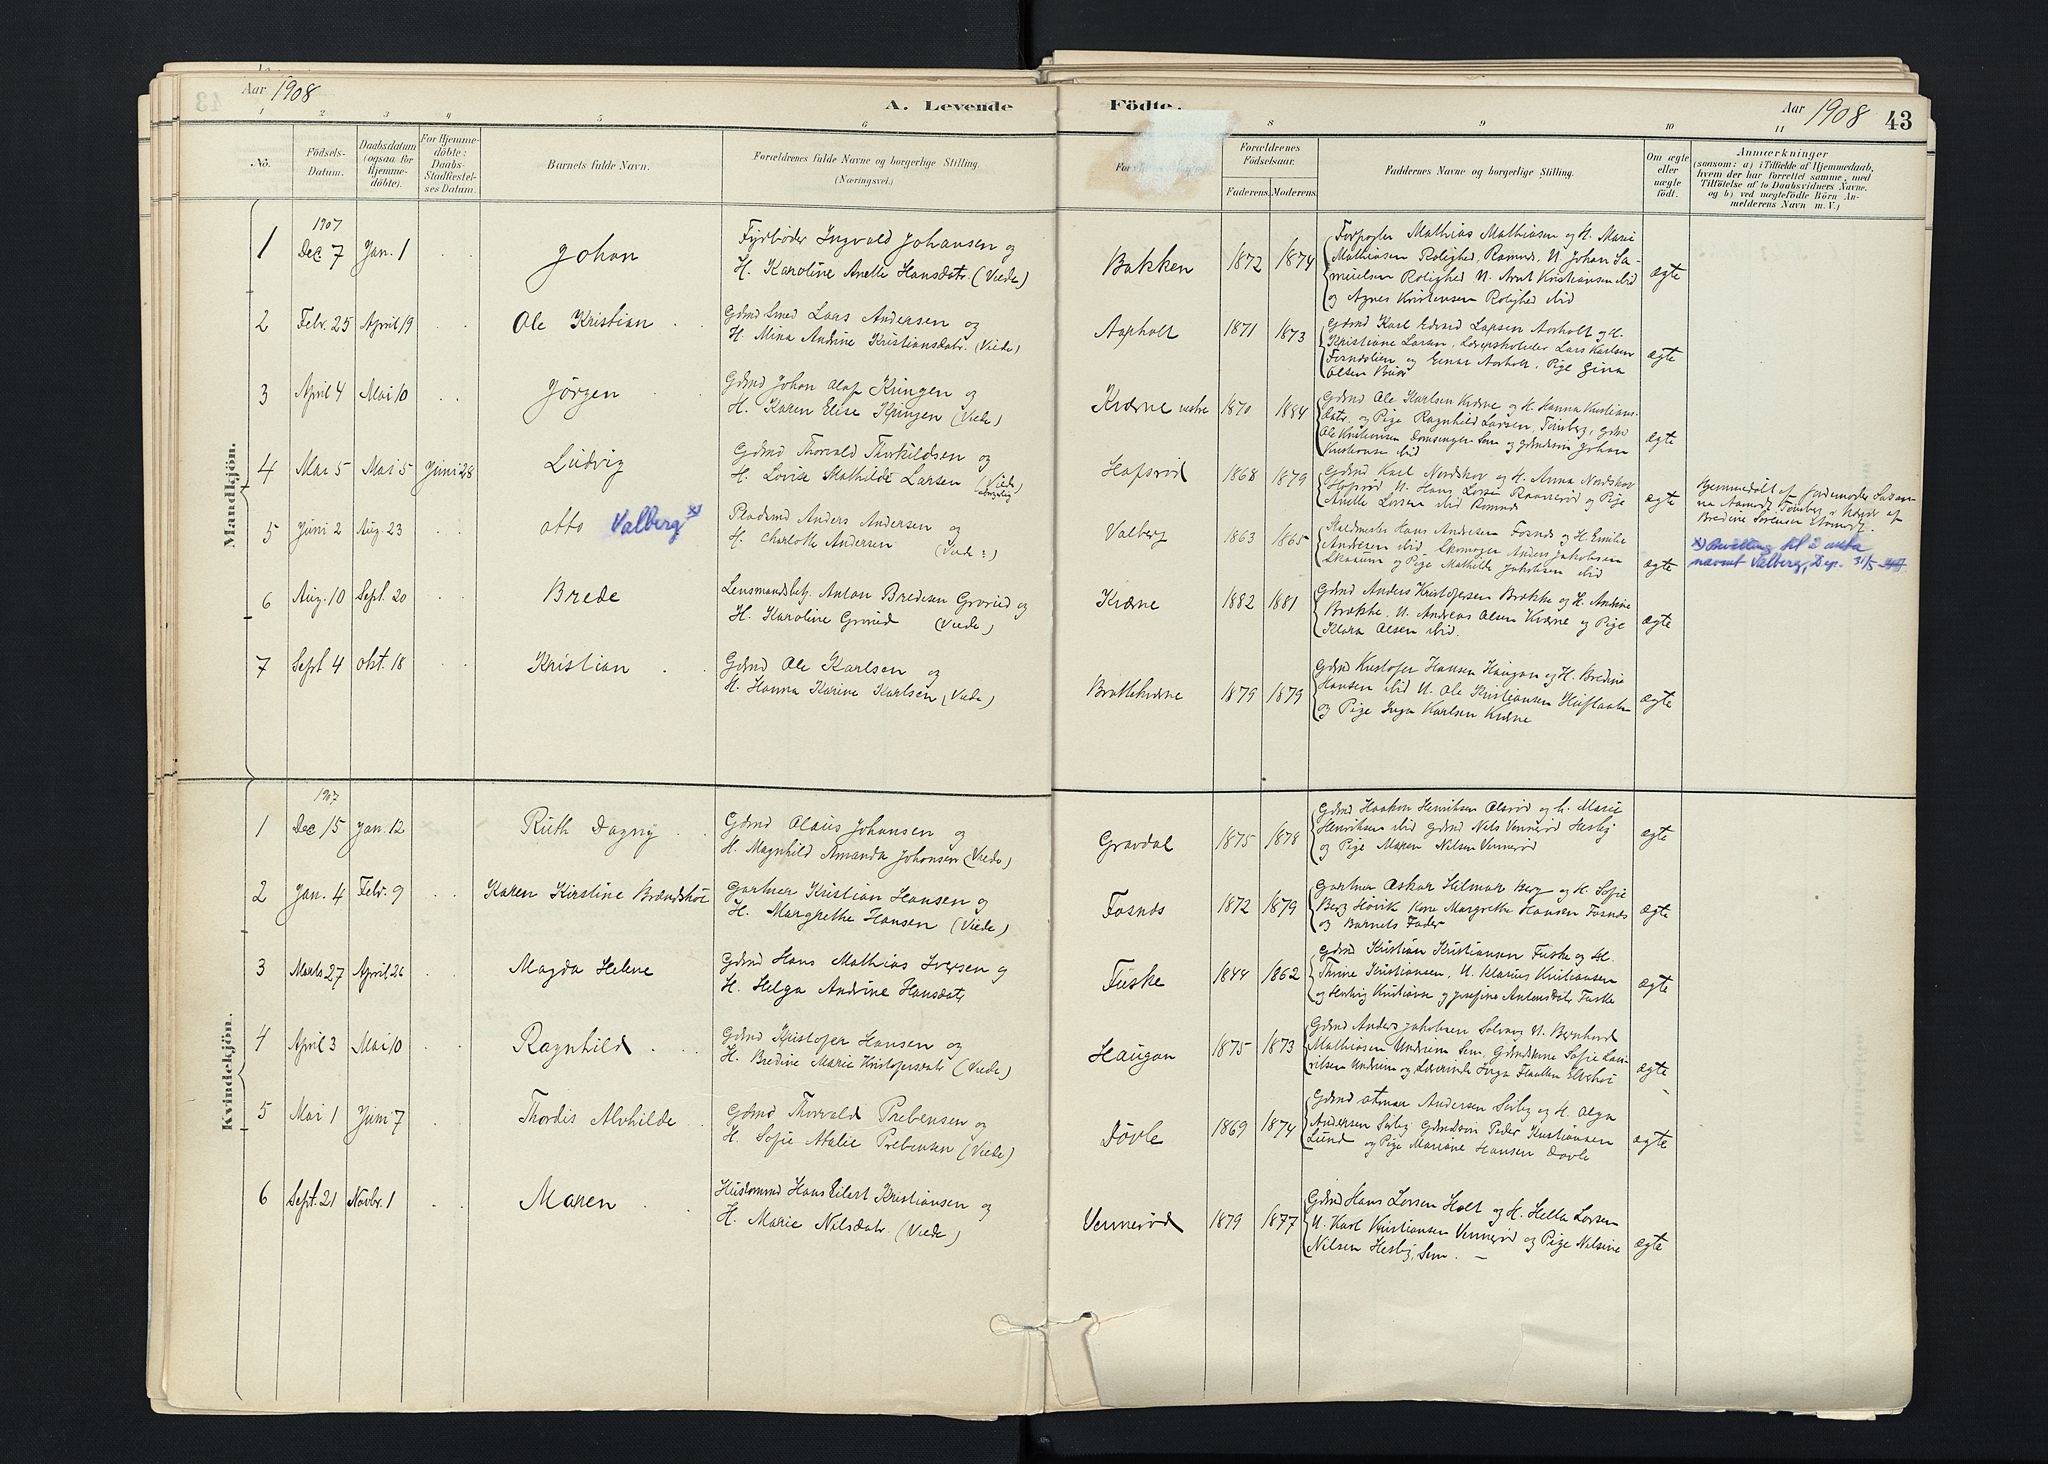 Aar 1908
A. Levende
Födte.
Aar 1908 43
1 2 3 4 5 6 8 9 10 11
No.
Födsels-
Datum.
Daabsdatum
(ogsaa for
Hjemme-
döbte).
For Hjemme-
döbte:
Daabs-
Stadfæstel-
ses Datum.
Barnets fulde Navn.
Forældrenes fulde Navne og borgerlige Stilling.
(Næringsvei.)
Forældrenes
Födselsaar.
Faderens. Moderens.
Faddernes Navne og borgerlige Stilling.
Om ægte
eller
uægte
födt.
Anmærkninger
(saasom: a) i Tilfælde af Hjemmedaab,
hvem der har forrettet samme, med
Tilföielse af to Daabsvidners Navne,
og b) ved uægtefödte Börn An-
melderens Navn m. V.)
Mandkjön.
1907
1 Dec 7 Jan. 1 Johan
Fyrböder Ingvald Johansen og
H. Karoline Anette Hansdatr. (Viede)
Bakken 1872 1874
Mathias Mathiasen og H. Marie
Mathiasen Rolighed, Ramnes, U. Johan Sa-
muelsen Rolighed U. Arnt Kristiansen ibid
og Agnes Kristensen Rolighed ibid
ægte
2 Febr. 25 April 19 Ole Kristian
Gdmd Smed Lars Andersen og
H. Mina Andrine Kristiansdatr. (Viede)
Aasholt 1871 1873
Gdmd Karl Edvard Larsen Aarholt og H.
Kristiane Larsen, Lars Karlsen
og Einar Aarholt, Pige Gina
Olsen
ægte
3 April 4 Mai 10 Jörgen
Gdmd Johan Olaf Kringen og
H. Karen Elise Kringen (Viede)
Kværne vestre 1870 1884
Gdmd Ole Karlsen Kværne og H. Hanna Kristians-
datr, og Pige Ragnhild Larsen, Tönsberg, gdm
Ole Kristiansen Sem og Johan
Kristiansen ibid
ægte
4 Mai 5 Mai 5 Juni 28 Ludvig
Gdmd Thorvald Thorkildsen og
H. Lovise Mathilde Larsen (Viede
borgerlig)
Hafsröd 1868 1879
Gdmd Karl Nordskov og H. Anna Nordskov
Hafsröd U. Hans Larsen og Pige
Anette Larsen ibid Ramnes
ægte
Hjemmedöbt af Jordemoder Susan-
na Aamodt, Tönsberg i Nærvær af
Bredine Sörensen
5 Juni 2 Aug 23 Otto Valberg x)
Pladsmd Anders Andersen og
H. Charlotte Andersen (Viede?)
Valberg 1863 1865
Staldmester Hans Andersen Fosnæs og H. Emilie
Andersen ibid, Skomager Anders Jakobsen
og Pige Mathilde Jakobsen ibid
ægte
x) Bevilling til å anta
navnet Valberg, Dep. 31/5
6 Aug. 10 Sept. 20 Brede
Lensmandsbetj. Anton Bredesen Grorud og
H. Karoline Grorud (Viede)
Kværne 1882 1881
Gdmd Anders Kristofersen Brække og H. Andrine
Brække. U. Andreas Olsen Kværne og Pige
Klara Olsen ibid.
ægte
7 Sept 4 Okt. 18 Kristian
Gdmd Ole Karlsen og
H. Hanna Karine Karlsen (Viede)
Brattekværne 1879 1879
Gdmd Kristofer Hansen Haugan og H. Bredine
Hansen ibid U. Ole Kristiansen
og Pige Inga Karlsen Kværne
ægte
Kvindekjön.
1907
1 Dec 15 Jan. 12 Ruth Dagny
Gdmd Olaus Johansen og
H. Magnhild Amanda Johansen (Viede)
Gravdal 1875 1878
Gdmd Haakon Henriksen Olsröd og H. Marie
Henriksen ibid Gdmd Nils Venneröd Hesby
og Pige Maren Nilsen Venneröd
ægte
2 Jan. 4 Febr. 9 Karen Kirstine Brændshöi
Gartner Kristian Hansen og
H. Margrethe Hansen (Viede)
Fosnæs 1872 1879
Gartner Oskar Helmar Berg og H. Sofie
Berg Hövik Kone Margrethe Hansen Fosnæs
og Barnets Fader
ægte
3 Marts 27 April 26 Magda Helene
Gdmd Hans Mathias Iversen og
H. Helga Andrine Hansdatr
Fuske 1844 1862
Gdmd Kristian Kristiansen Fuske og H.
Thrine Kristiansen, U. Klarius Kristiansen
og Hedvig Kristiane og Josefine Antonsdatr Fuske
ægte
4 April 3 Mai 10 Ragnhild
Gdmd Kristofer Hansen og
H. Bredine Marie Kristofersdatr (Viede)
Haugan 1875 1873
Gdmd Anders Jakobsen Solvang U. Bernhard
Mathiasen Undrum Sem, Gdmdskone Sofie Lau-
ritsen Undrum og Lærerinde Inga Flaatten Elvehöi
ægte
5 Mai 1 Juni 7 Thordis Alvhilde
Gdmd Thorvald Prebensen og
H. Sofie Amalie Prebensen (Viede)
Dövle 1869 1874
Gdmd Otmar Andersen Seeby og H. Olga
Andersen Seeby Gdmdssön Peder Kristiansen
Lund og Pige Mariane Hansen Dovle
ægte
6 Sept. 21 Novbr. 1 Maren
Husmmd Hans Eilert Kristiansen og
H. Marie Nilsdatr. (Viede)
Venneröd 1879 1877
Gdmd Hans Larsen Holt og H. Hella Larsen
U. Karl Kristiansen Venneröd og Pige Nilsine
Nilsen Hesby, Sem.
ægte